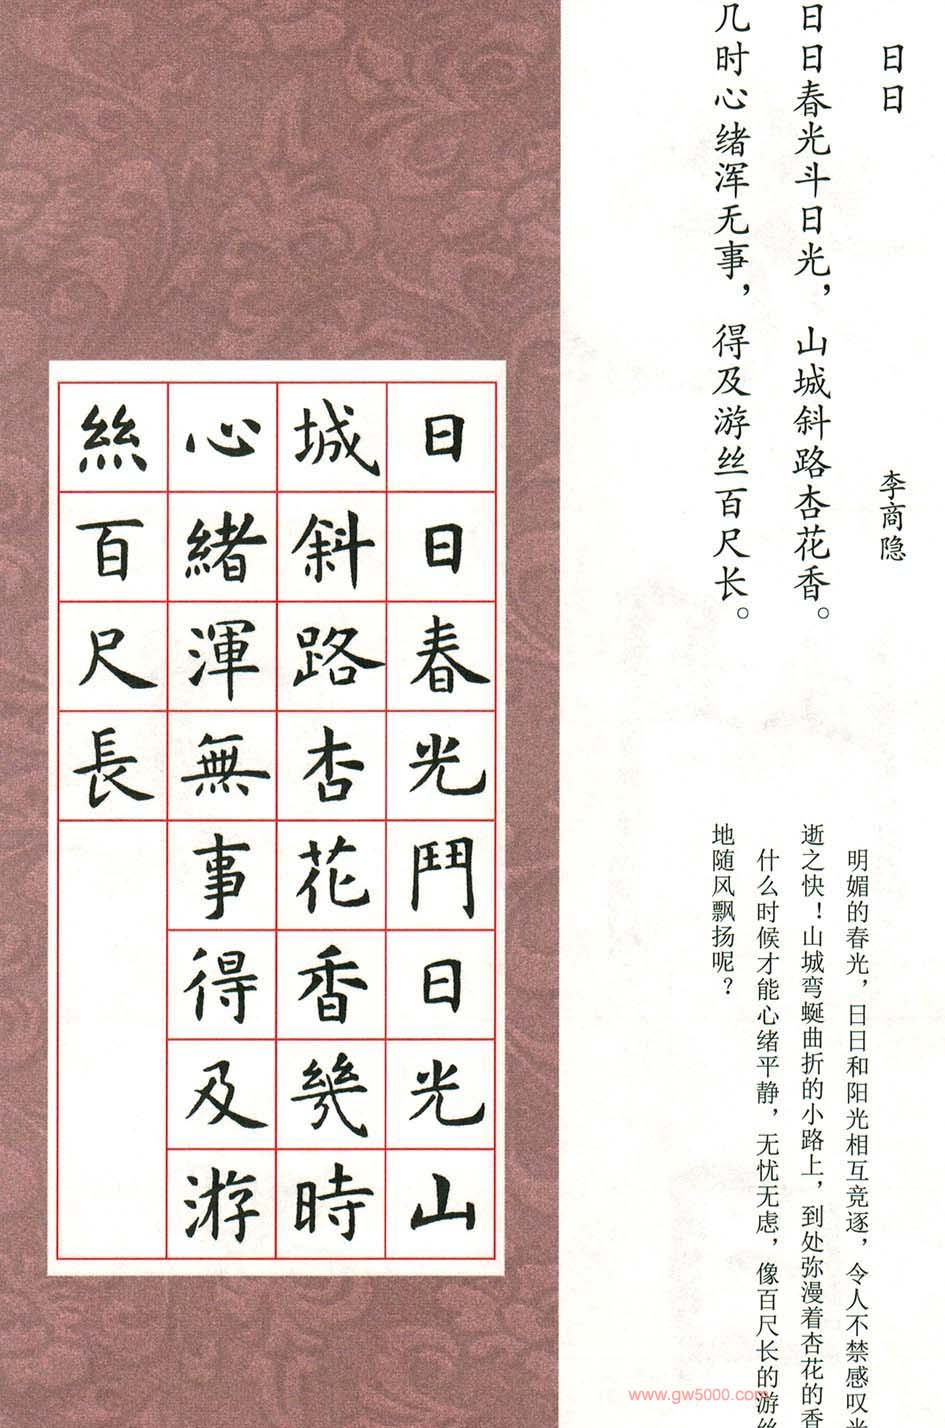 日日
李商隐
日日春光斗日光，山城斜路杏花香。
几时心绪浑无事，得及游丝百尺长。
明媚的春光，日日和阳光相互竞逐，令人不禁感叹
逝之快！山城弯蜒曲折的小路上，到处弥漫着杏花的香
什么时候才能心绪平静，无忧无虑，像百尺长的游
地随风飘扬呢？
日日春光鬥日光山
城斜路杏花香幾時
心緒渾無事得及游
絲百尺長
www.gw5000.com